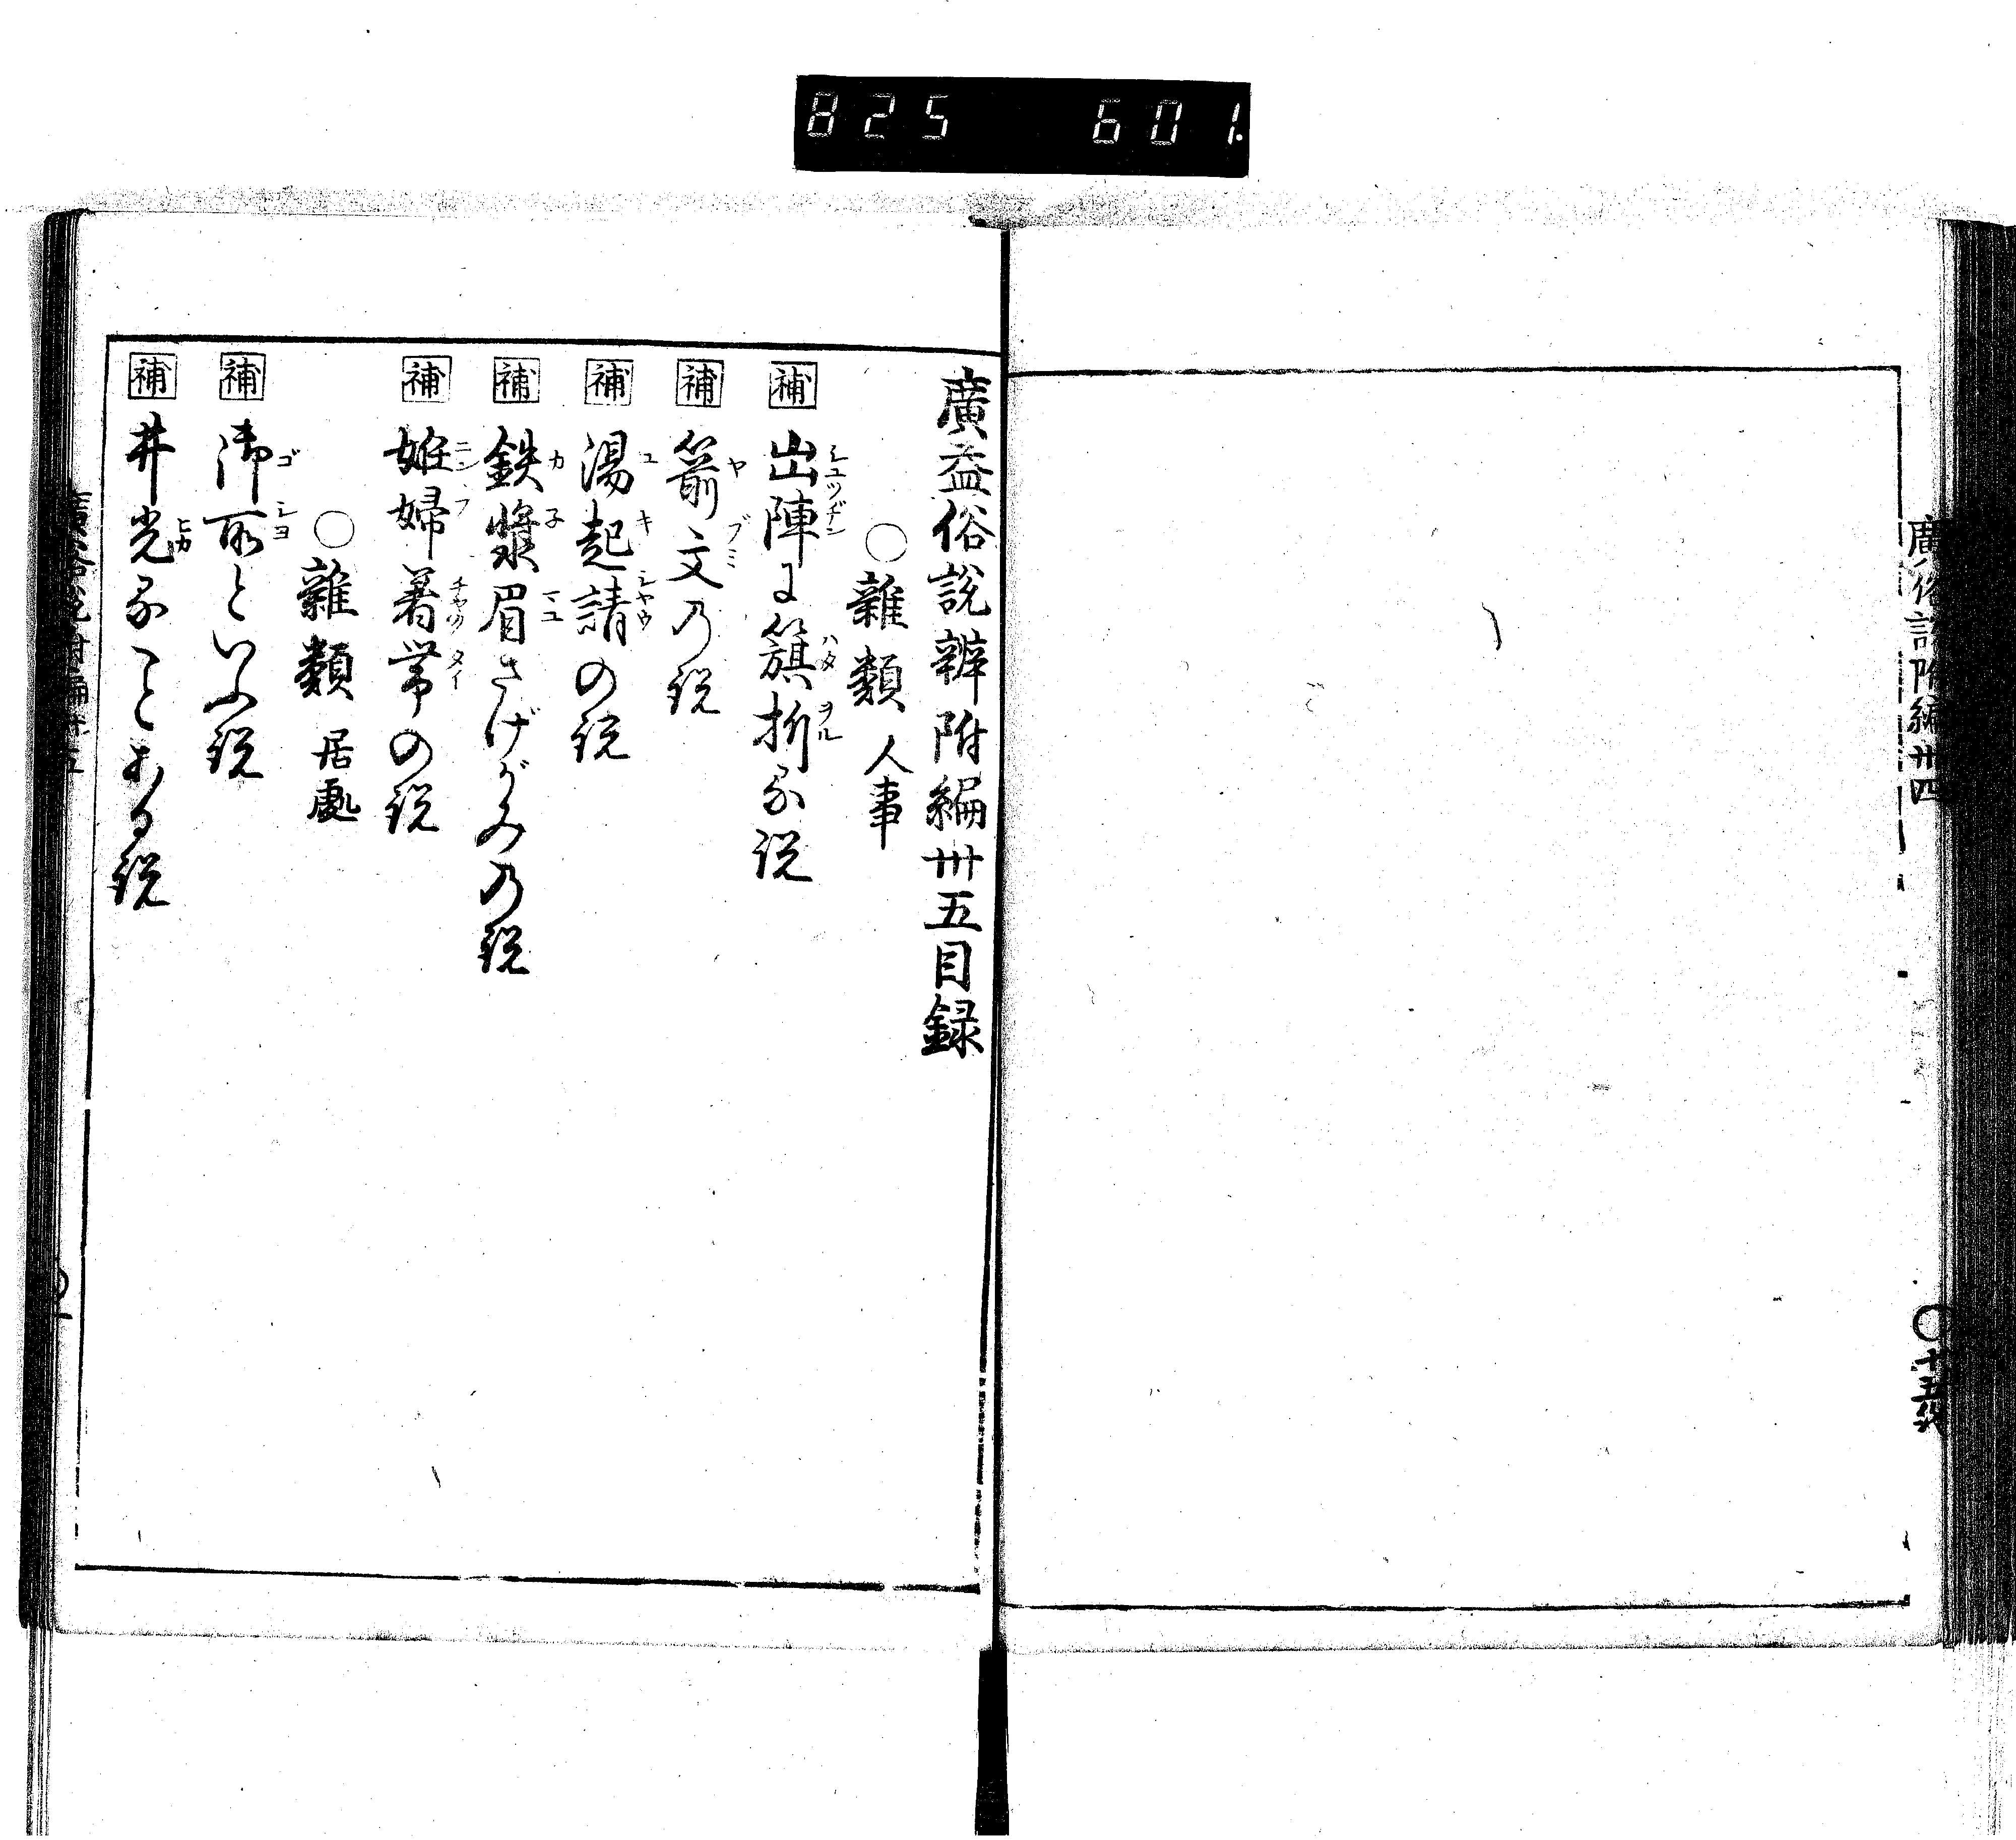 825 601
廣俗説附編卅四
○十五終
廣益俗説辨附編卅五目録
○雜類 人事
補 出陣に籏折る説
補 箭文の説
補 湯起請の説
補 鉄漿眉さげがみの説
補 姙婦著帯の説
○雜類 居處
補 御所といふ説
補 井光ることある説